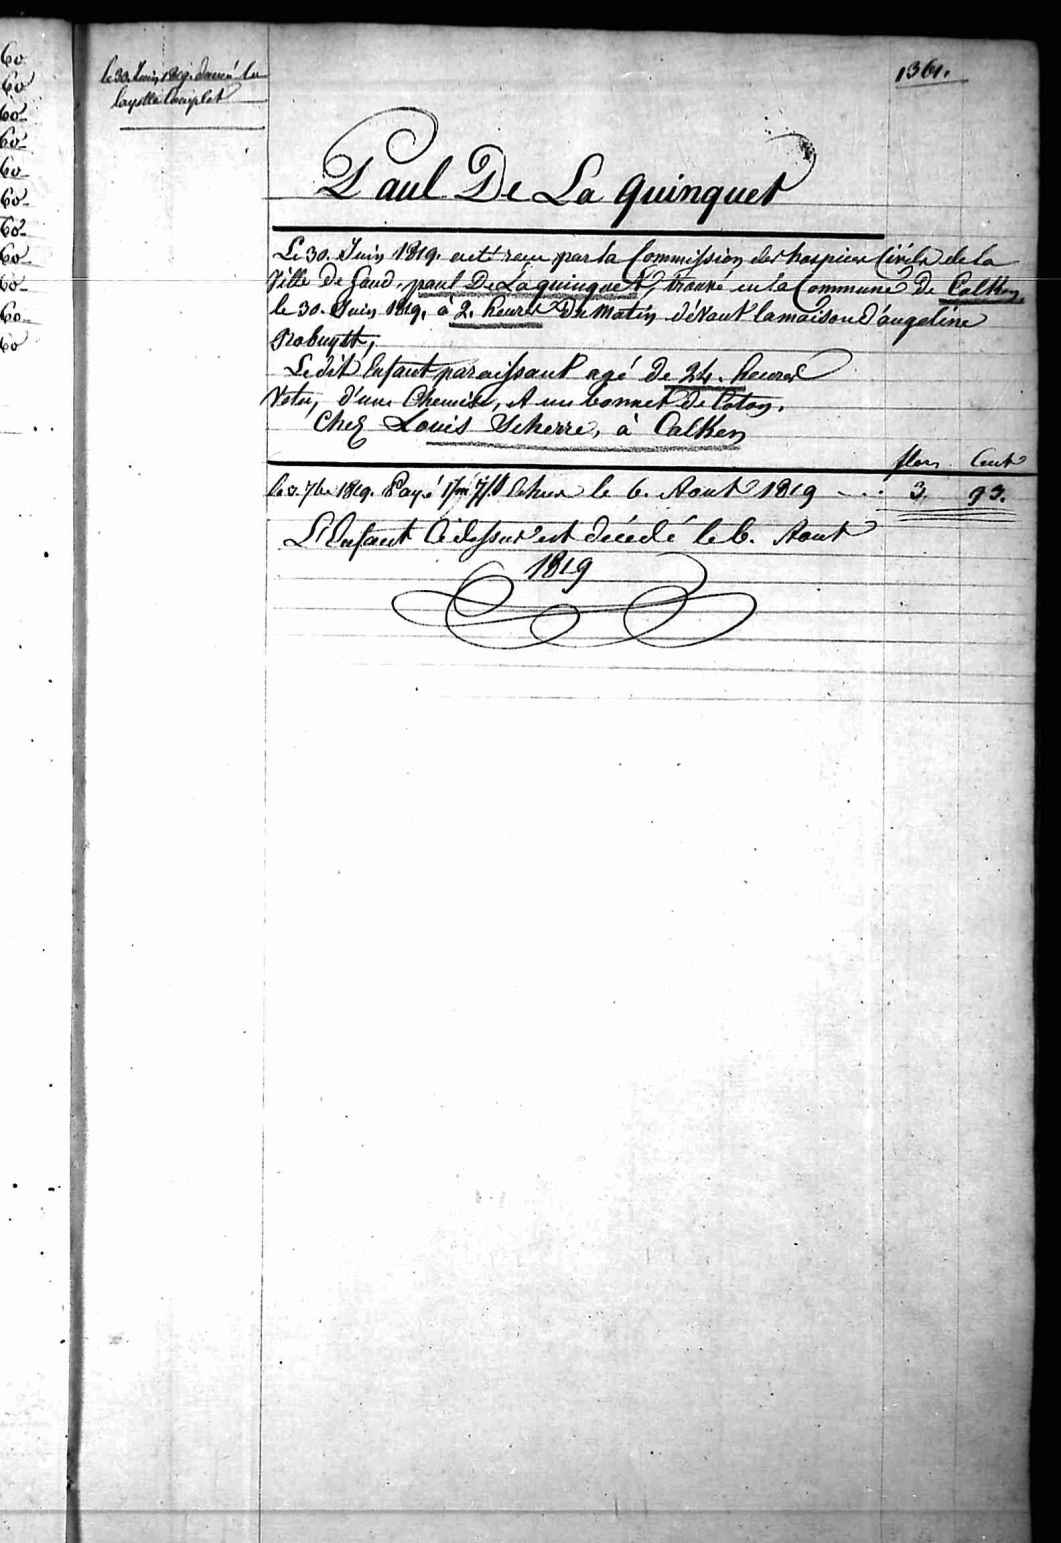 60
60
60
60
60
60
60
60
60
60
60
le 30. Juin 1819. donné la
layette Complet
1361.
Paul De La quinquet
Le 30. Juin 1819. a été reçu par la Commission des hospices Civils de la
Ville de Gand, paul De La quinquet, trouvé en la Commune de Calken,
le 30. Juin 1819, à 2. heures Du Matin dévant la maison d'angeline
Ledit Enfant paraissant agé de 24. heures
Vetu, d'une Chemise, et un bonnet de Coton.
Chez Louis Scherre, à Calken
flors Cent
le 7bre 1819. Payé le 6. Aout 1819 3. 93.
L'Enfant Ci dessus est décédé le 6. Aout
1819